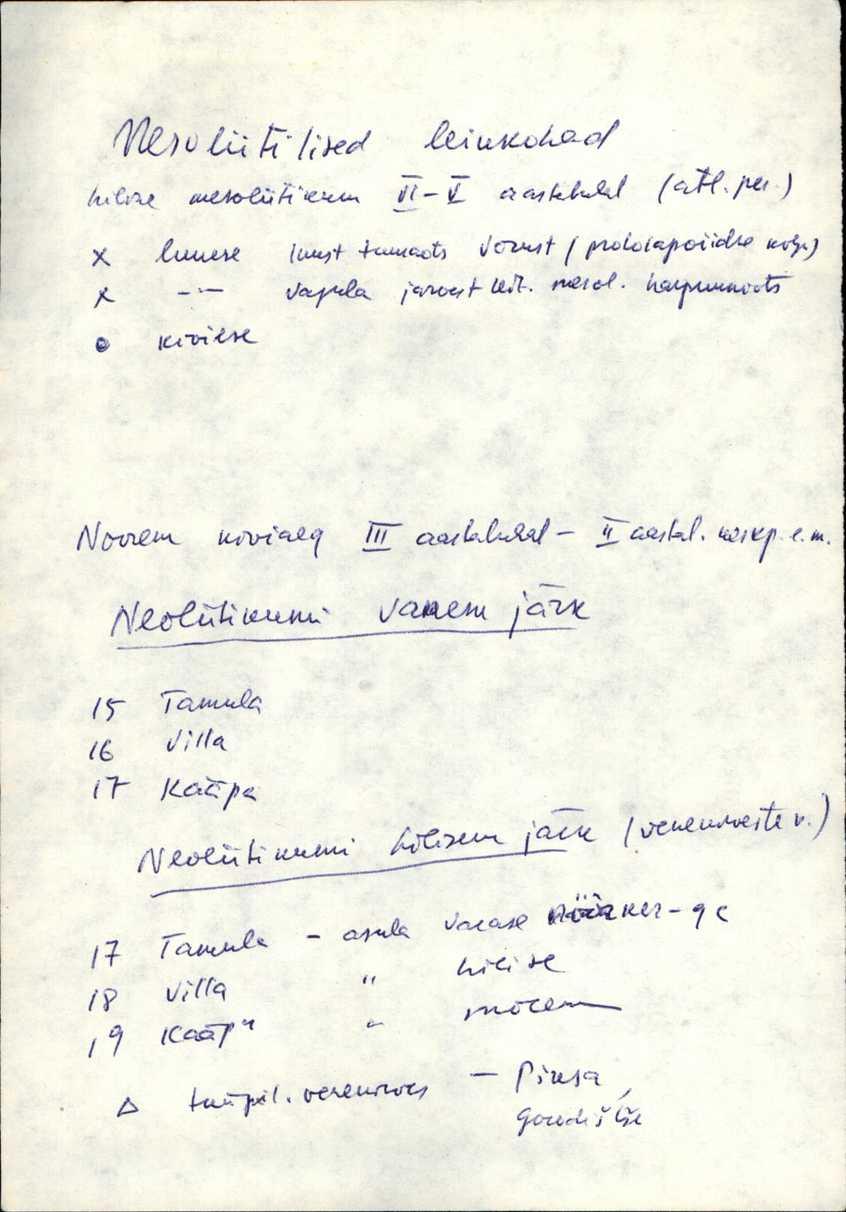 Mesoliitilised leiukohad
hilise mesoliitikumi VI – V aastatuhat (atl. per.)
x luuese luust tuuraots Võrust (
x –"– Vagula järvest leit. mesol. harpuunots
kiviese
Noorem kiviaeg III aastatuhat – II aastat. keskp. e.m.
Neoliitikumi vanem järk
15 Tamula
16 Villa
17 Kääpa
Neoliitikumi hilisem järk (venekirveste k.)
17 Tamula – asula varase nöörker-ga
18 Villa " hilise
19 Kääpa "
Δ venekirves – Piusa,